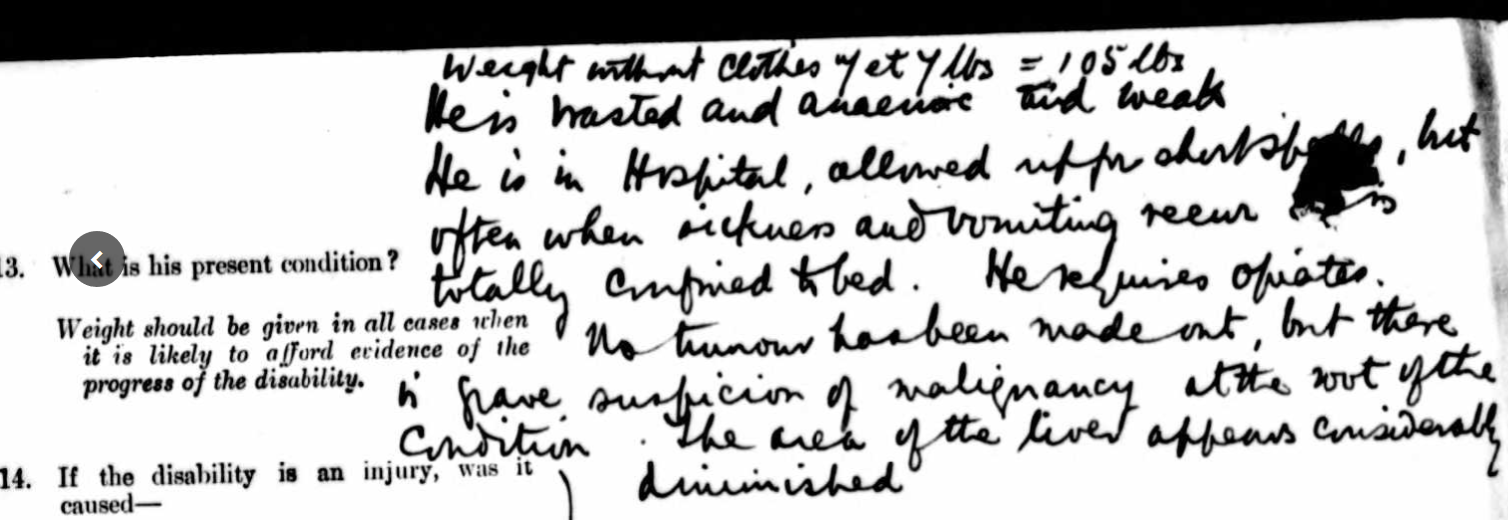 Weight without clothes 7 st 7 lbs = 105 lbs
He is wasted and anaemic and weak
He is in Hospital, allowed up for short, but
often when sickness and vomiting recur is
13. What is his present condition?
totally confined to bed. He requires opiates.
Weight should be given in all cases when
it is likely to afford evidence of the
progress of the disability.
No tumour has been made out, but there
is grave suspicion of malignancy at the root of the
Condition. The area of the liver appears considerably
diminished
14. If the disability is an injury, was it
caused—